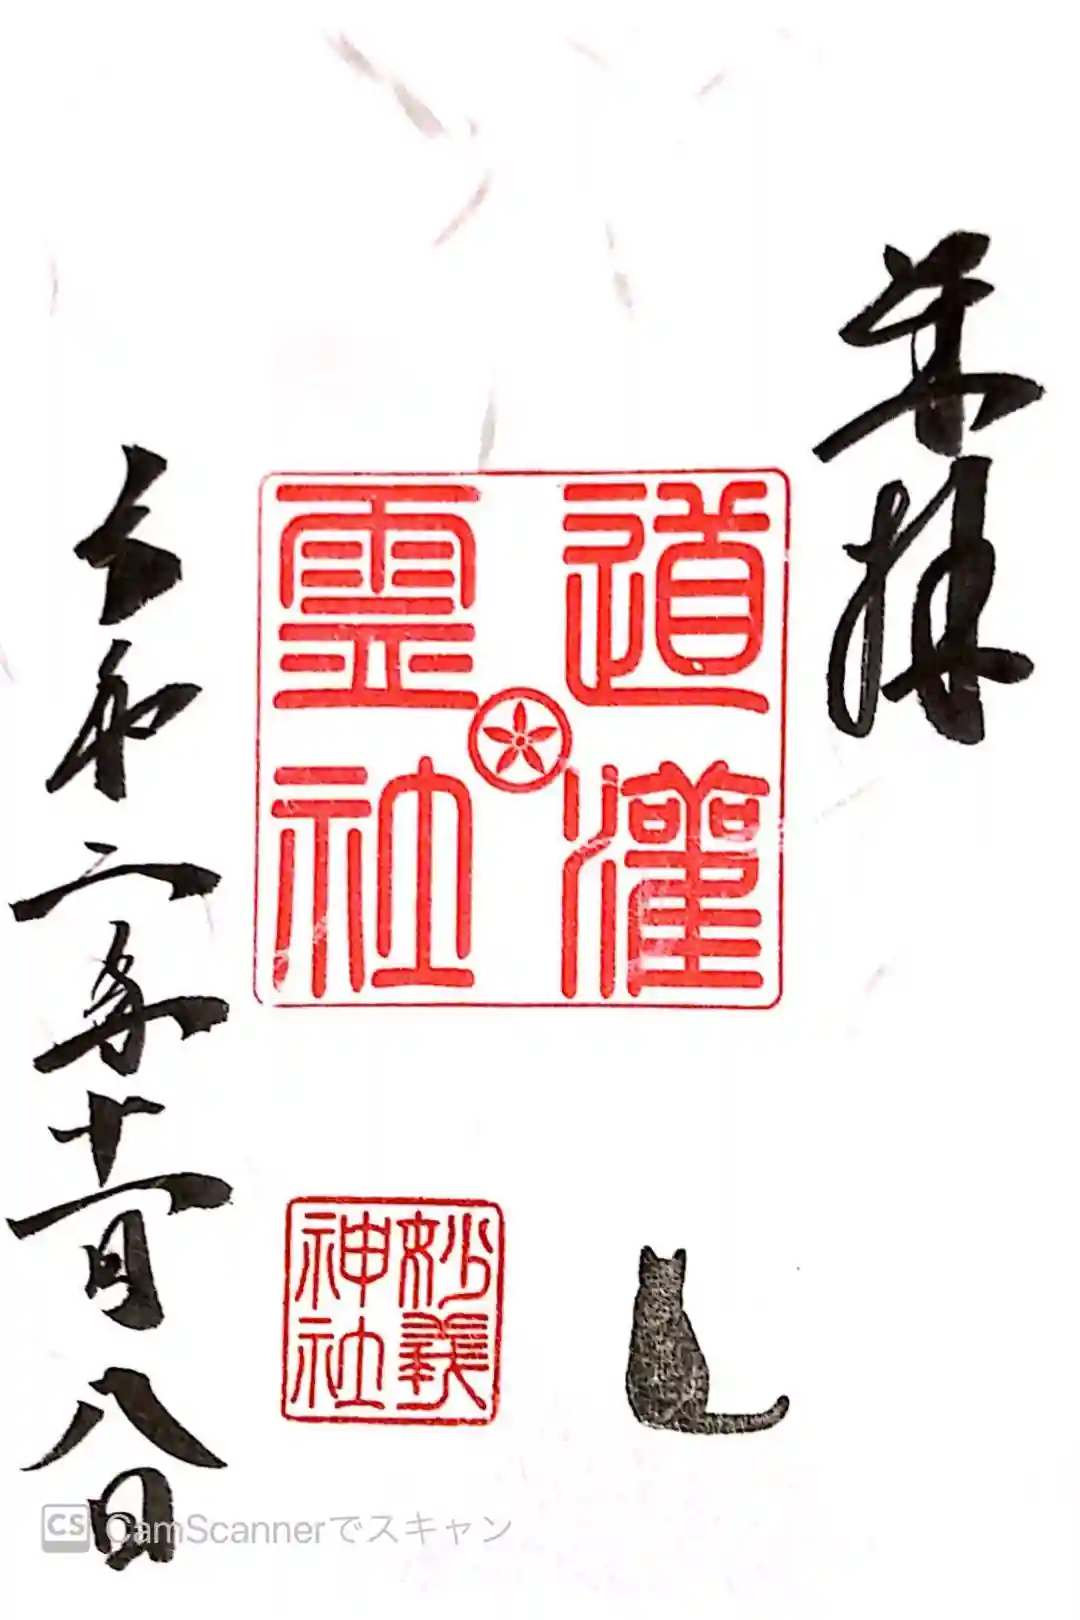 奉拝
道灌
霊社
妙義
神社
令和二年十一月八日
CS CamScannerでスキャン